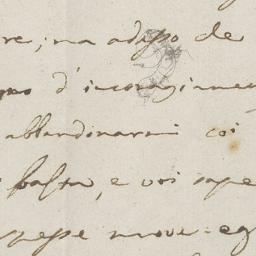 re; ma adesso de
d'incoragiamen
abbandonarmi coi
basta, e voi sape
spesse nuove eg